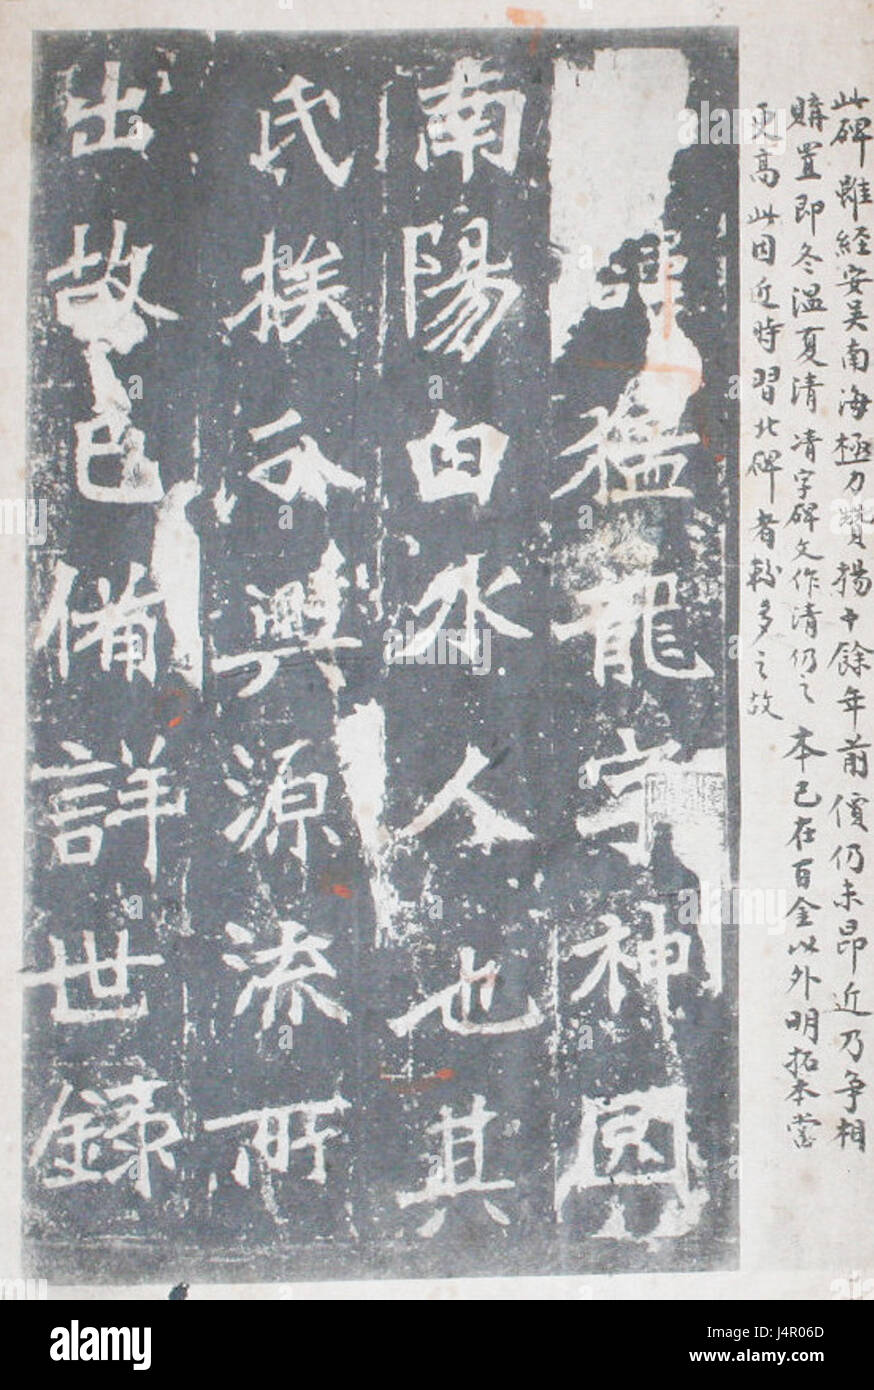 此碑雖經安吴南海極力贊揚十餘年前價仍未昂近乃争相
購置即冬温夏清凊字碑文作清仍之本已在百金以外明拓本當
更高此因近時習北碑者較多之故
諱猛龍字神冏
南陽白水人也其
氏族分興源流所
出故已備詳世録
alamy
Image ID: J4R06D
www.alamy.com